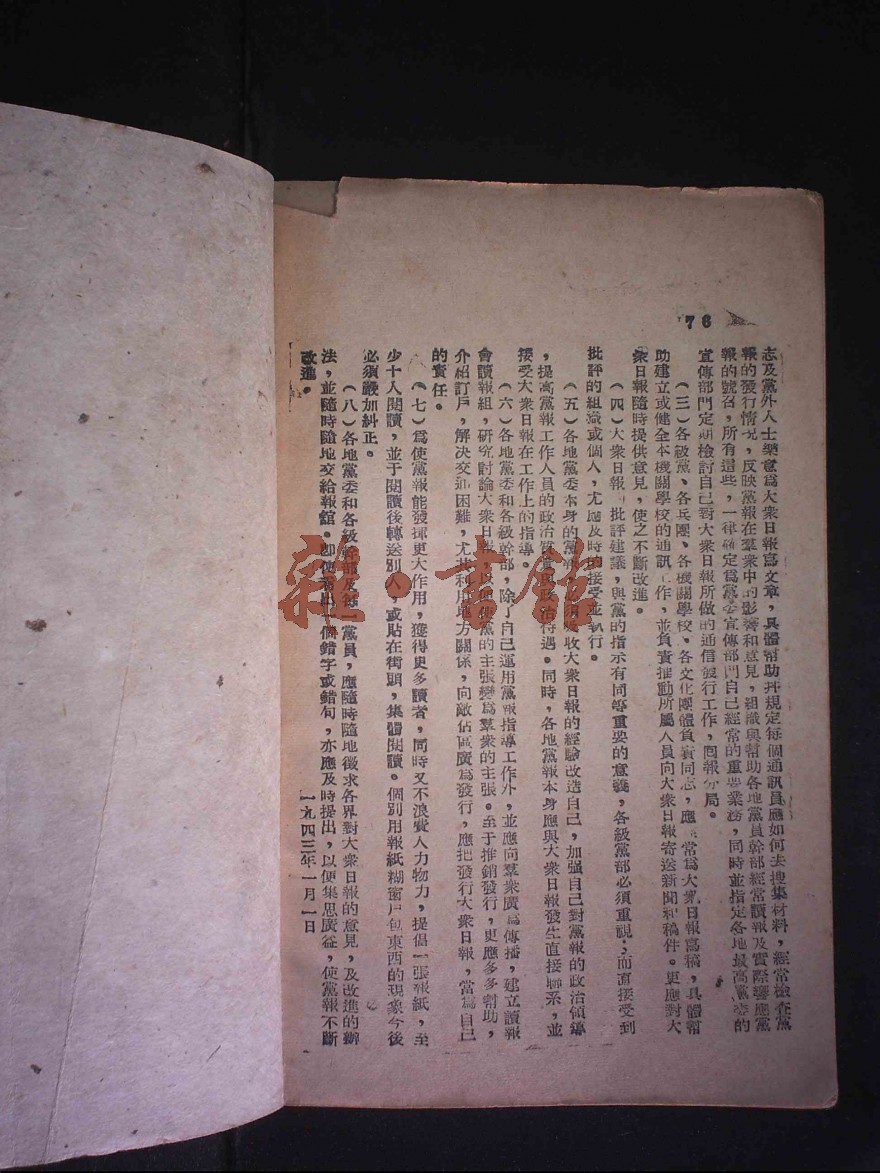 76
志及黨外人士樂意爲大衆日報寫文章，具體幫助并規定每個通訊員應如何去搜集材料，經常檢查黨
報的發行情況，反映黨報在羣衆中的影響和意見，組織與幫助各地黨員幹部經常讀報及實際響應黨
報的號召，所有這些，一律確定爲黨委宣傳部門自己經常的重要業務，同時並指定各地最高黨委的
宣傳部門定期檢討自己對大衆日報所做的通信發行工作，囘報分局。
（三）各級黨、各兵團、各機關學校、各文化團體負責同志，應經常爲大衆日報寫稿，具體幫
助建立或健全本機關學校的通訊工作，並負責推動所屬人員向大衆日報寄送新聞和稿件。更應對大
衆日報隨時提供意見，使之不斷改進。
（四）大衆日報的批評建議，與黨的指示有同等重要的意義，各級黨部必須重視，而直接受到
批評的組織或個人，尤應及時的接受並執行。
（五）各地黨委本身的黨報，必須吸收大衆日報的經驗改造自己，加强自己對黨報的政治領導
，提高黨報工作人員的政治質量與政治待遇。同時，各地黨報本身應與大衆日報發生直接聯系，並
接受大衆日報在工作上的指導。
（六）各地黨委和各級幹部，除了自己運用黨報指導工作外，並應向羣衆廣爲傳播，建立讀報
會讀報組，研究討論大衆日報，以便使黨的主張變爲羣衆的主張。至于推銷發行，更應多多幫助，
介紹訂戶，解决交通困難，尤其利用地方關係，向敵佔區廣爲發行，應把發行大衆日報，當爲自己
的責任。
（七）爲使黨報能發揮更大作用，獲得更多讀者，同時又不浪費人力物力，提倡一張報紙，至
少十人閱讀，並于閱讀後轉送別人，或貼在街頭，集體閱讀。個別用報紙糊窗戶包東西的現象今後
必須嚴加糾正。
（八）各地黨委和各級幹部及每一黨員，應隨時隨地徵求各界對大衆日報的意見，及改進的辦
法，並隨時隨地交給報館。即使看出一個錯字或錯句，亦應及時提出，以便集思廣益，使黨報不斷
改進。
一九四三年一月一日
雜·書館